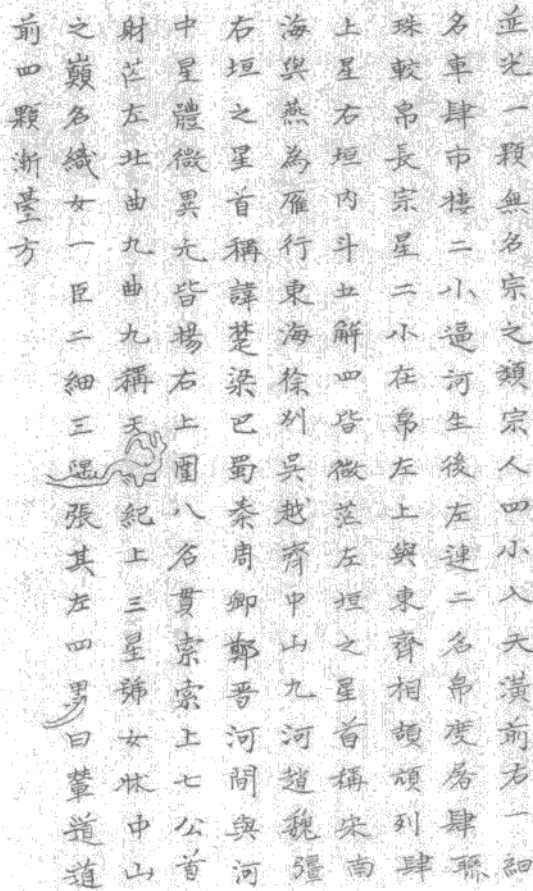 並光一顆無名宗之類宗人四小入天潢前右一細
名車肆市樓二小逼河生後左連二名帛度屠肆聯
珠較帛長宗星二小在帛左上與東齊相頡頏列肆
上星右垣內斗五解四皆微茫左垣之星首稱宋南
海與燕為雁行東海徐列吳越齊中山九河趙魏彊
右垣之星首稱韓楚梁巴蜀秦周鄭晉河間與河
中星體微異亢皆揚右上圍八名貫索索上七公首
射茫左北曲九曲九稱天紀上三星號女牀中山
之巔名織女一巨二細三隅張其左四里曰輦道道
前四顆漸臺方